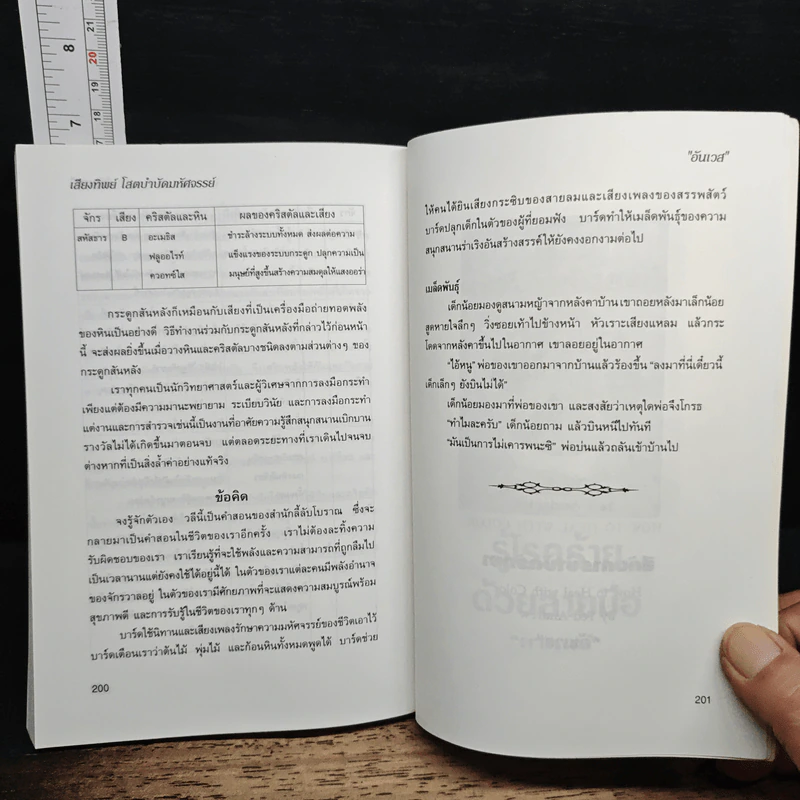 8
7
21
20
19
18
เสียงทิพย์ โสตบำบัดมหัศจรรย์
จักร เสียง คริสตัลและหิน ผลของคริสตัลและเสียง
สหัสธาร B อะเมธิส ชำระล้างระบบทั้งหมด ส่งผลต่อความ
ฟลูออไรท์ แข็งแรงของระบบกระดูก ปลุกความเป็น
ควอทซ์ใส มนุษย์ที่สูงขึ้นสร้างความสมดุลให้แสงออร่า
กระดูกสันหลังก็เหมือนกับเสียงที่เป็นเครื่องมือถ่ายทอดพลัง
ของหินเป็นอย่างดี วิธีทำงานร่วมกับกระดูกสันหลังที่กล่าวไว้ก่อนหน้า
นี้ จะส่งผลยิ่งขึ้นเมื่อวางหินและคริสตัลบางชนิดลงตามส่วนต่างๆ ของ
กระดูกสันหลัง
เราทุกคนเป็นนักวิทยาศาสตร์และผู้วิเศษจากการลงมือกระทำ
เพียงแต่ต้องมีความมานะพยายาม ระเบียบวินัย และการลงมือกระทำ
แต่งานและการสำรวจเช่นนี้เป็นงานที่อาศัยความรู้สึกสนุกสนานเบิกบาน
รางวัลไม่ได้เกิดขึ้นมาตอนจบ แต่ตลอดระยะทางที่เราเดินไปจนจบ
ต่างหากที่เป็นสิ่งล้ำค่าอย่างแท้จริง
ข้อคิด
จงรู้จักตัวเอง วลีนี้เป็นคำสอนของสำนักลี้ลับโบราณ ซึ่งจะ
กลายมาเป็นคำสอนในชีวิตของเราอีกครั้ง เราไม่ต้องละทิ้งความ
รับผิดชอบของเรา เราเรียนรู้ที่จะใช้พลังและความสามารถที่ถูกลืมไป
เป็นเวลานานแต่ยังคงใช้ได้อยู่นี้ได้ ในตัวของเราแต่ละคนมีพลังอำนาจ
ของจักรวาลอยู่ ในตัวของเรามีศักยภาพที่จะแสดงความสมบูรณ์พร้อม
สุขภาพดี และการรับรู้ในชีวิตของเราทุกๆ ด้าน
บาร์ดใช้นิทานและเสียงเพลงรักษาความมหัศจรรย์ของชีวิตเอาไว้
บาร์ดเตือนเราว่าต้นไม้ พุ่มไม้ และก้อนหินทั้งหมดพูดได้ บาร์ดช่วย
200
"อันเวส"
ให้คนได้ยินเสียงกระซิบของสายลมและเสียงเพลงของสรรพสัตว์
บาร์ดปลุกเด็กในตัวของผู้ที่ยอมฟัง บาร์ดทำให้เมล็ดพันธุ์ของความ
สนุกสนานร่าเริงอันสร้างสรรค์ให้ยังคงงอกงามต่อไป
เมล็ดพันธุ์
เด็กน้อยมองดูสนามหญ้าจากหลังคาบ้าน เขาถอยหลังมาเล็กน้อย
สูดหายใจลึกๆ วิ่งซอยเท้าไปข้างหน้า หัวเราะเสียงแหลม แล้วกระ
โดดจากหลังคาขึ้นไปในอากาศ เขาลอยอยู่ในอากาศ
"ไอ้หนู" พ่อของเขาออกมาจากบ้านแล้วร้องขึ้น "ลงมาที่นี่เดี๋ยวนี้
เด็กเล็กๆ ยังบินไม่ได้"
เด็กน้อยมองมาที่พ่อของเขา และสงสัยว่าเหตุใดพ่อจึงโกรธ
"ทำไมละครับ" เด็กน้อยถาม แล้วบินหนีไปทันที
"มันเป็นการไม่เคารพนะซิ" พ่อบ่นแล้วถลันเข้าบ้านไป
201